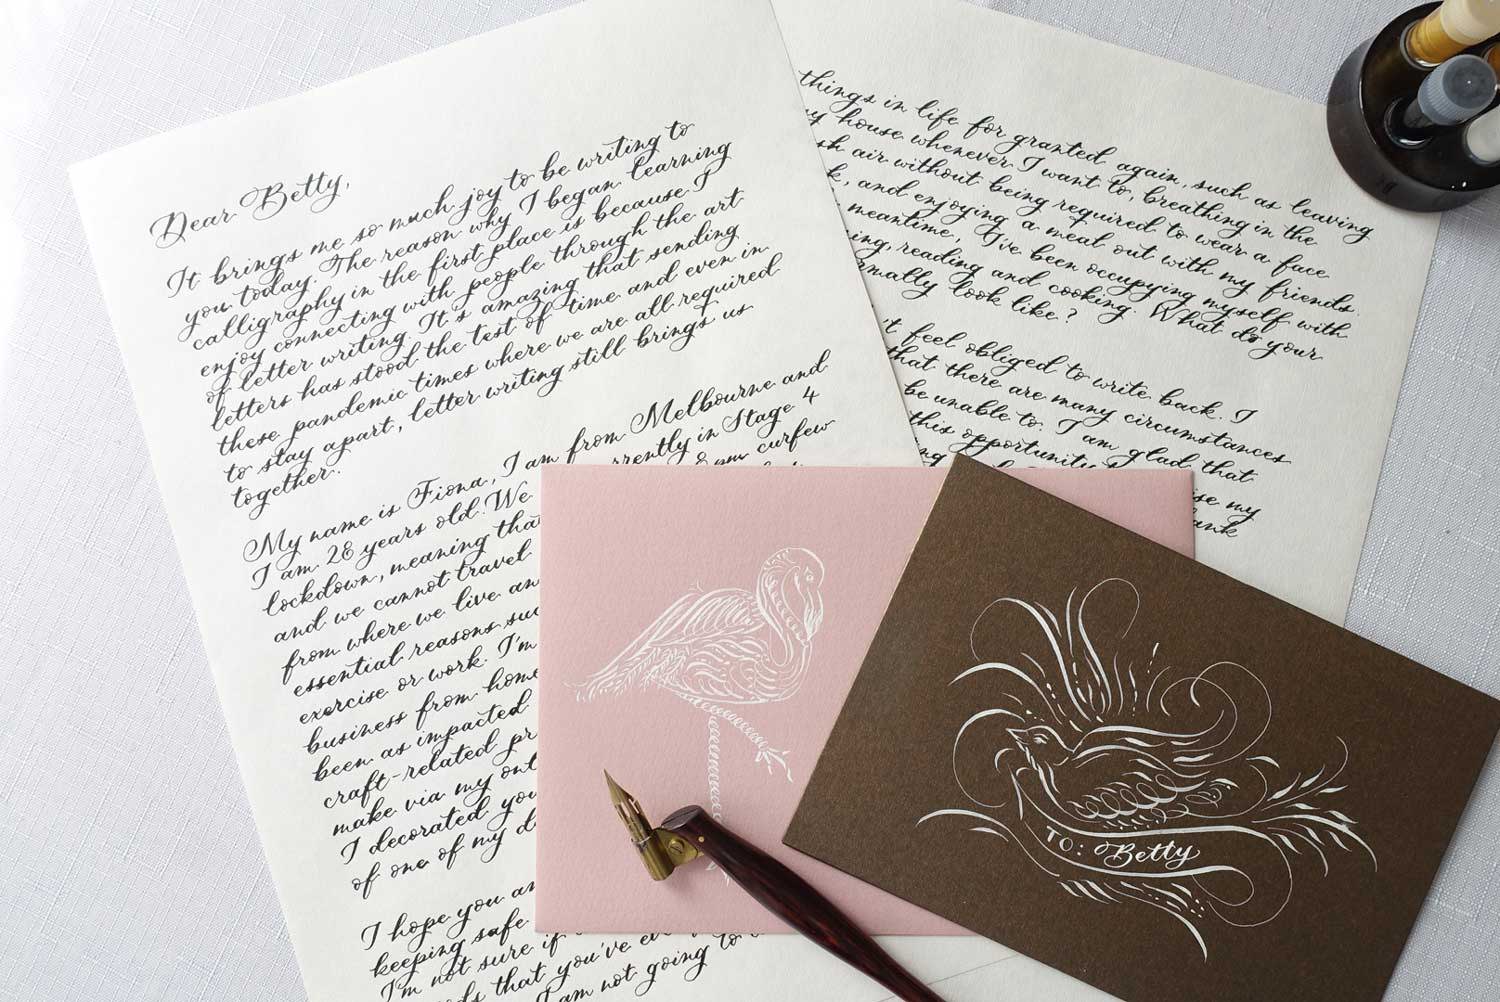 Dear Betty,
It brings me so much joy to be writing to
you today. The reason why I began learning
calligraphy in the first place is because I
enjoy connecting with people through the art
of letter writing. It's amazing that sending
letters has stood the test of time and even in
these pandemic times where we are all required
to stay apart, letter writing still brings us
together.
My name is Fiona, I am from Melbourne and
I am 28 years old. We rrently in Stage 4
lockdown, meaning tha 8 pm curfew
and we cannot travel
from where we live an
essential reasons suc
exercise or work. I'm
business from home
been as impacted
craft-related pr
make via my onl
I decorated you
of one of my d
I hope you ar
keeping safe
I'm not sure if
ds that you've ev
I am not going to
things in life for granted again, such as leaving
y house whenever I want to, breathing in the
sh air without being required to wear a face
k, and enjoying a meal out with my friends.
meantime, I've been occupying myself with
ing, reading and cooking. What do your
rmally look like?
't feel obliged to write back. I
that there are many circumstances
be unable to. I am glad that
this opportunity
ise my
ank
TO: Betty